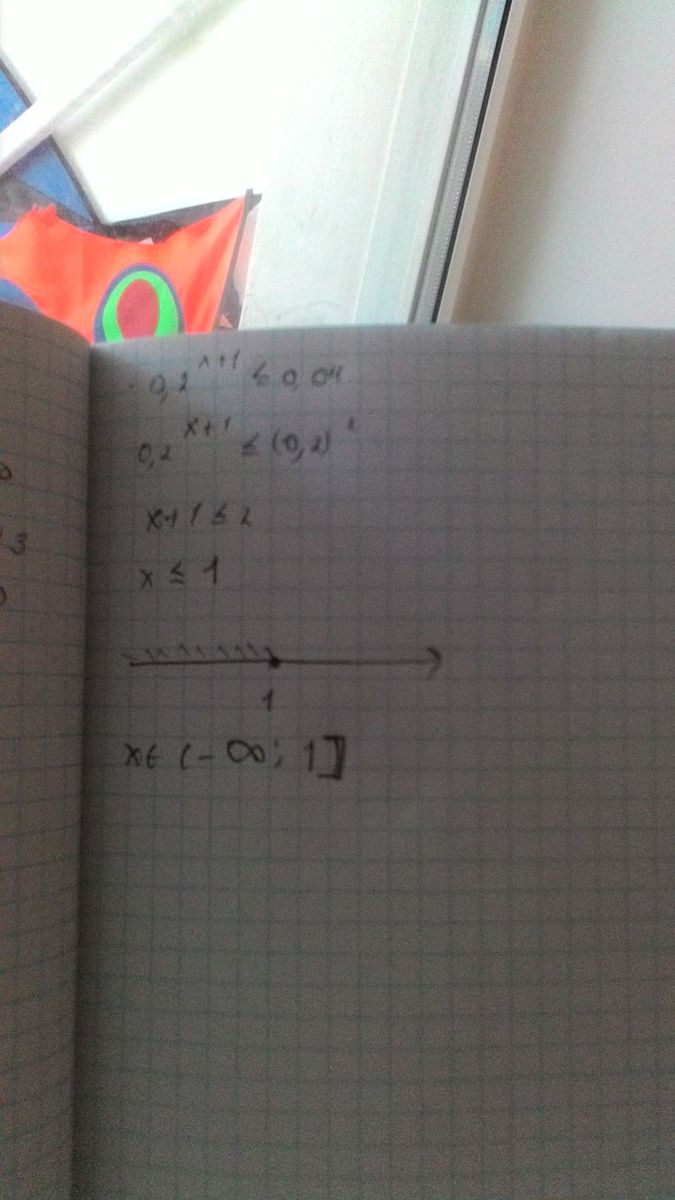 0,2^(x+1) ≤ 0,04
0,2^(x+1) ≤ (0,2)^2
x+1 ≤ 2
x ≤ 1
1
x ∈ (-∞; 1]
3